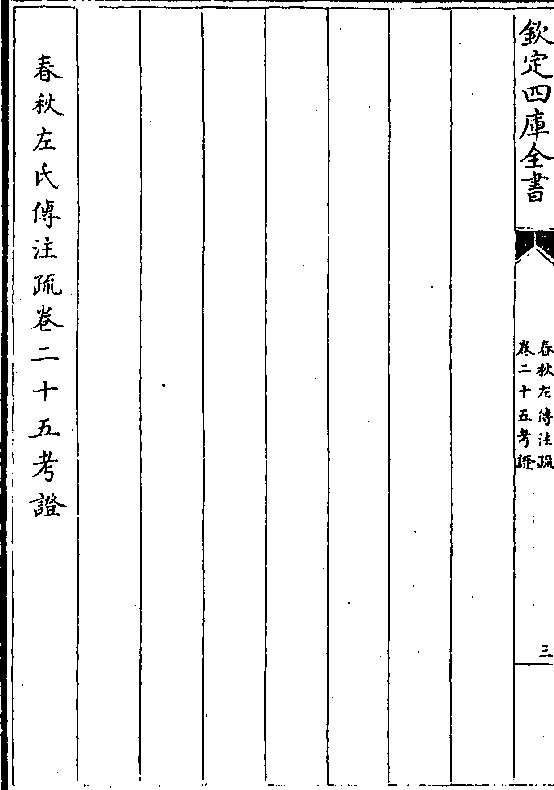 欽定四庫全書
春秋左傳注疏
卷二十五考證
三
春秋左氏傳注疏卷二十五考證